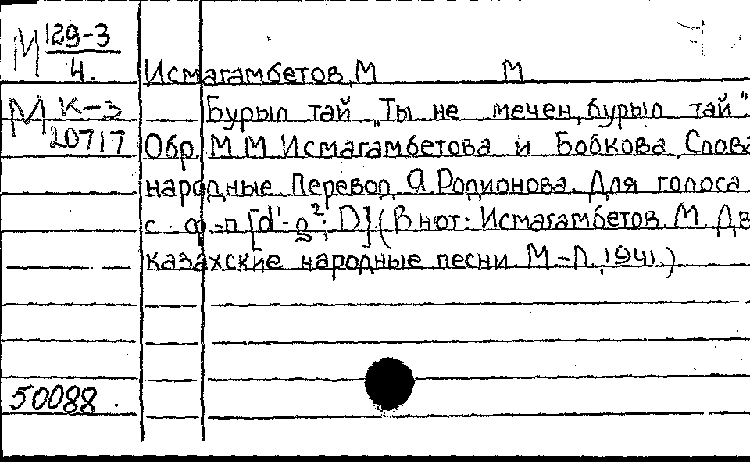 М 129-3
4.
Исмагамбетов, М М
М К-3
20717
Бурыл тай „Ты не мечен, бурыл тай"
Обр. М.М. Исмагамбетова и Бобкова. Слова
народные. Перевод Я. Родионова. Для голоса
с ф-п [d¹-g²; D] (В нот: Исмагамбетов М. Дв
казахские народные песни М-Л, 1941.)
50088.